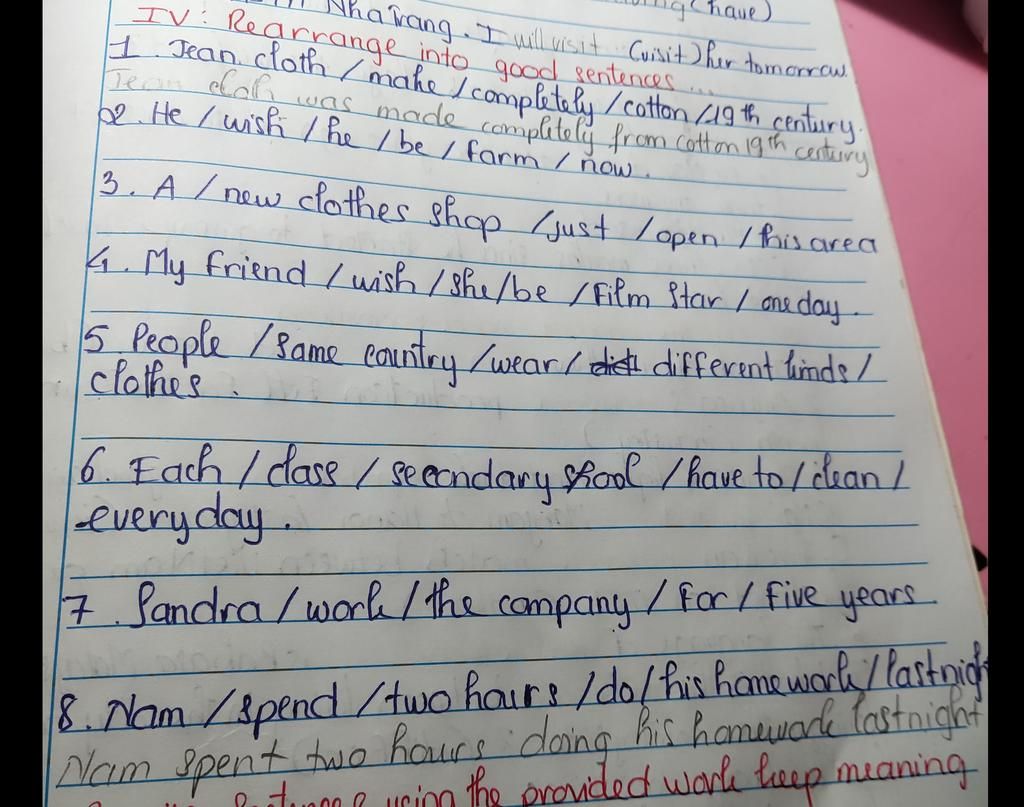 Nha Trang. I will visit (visit) her tomorrow.
(have)
IV: Rearrange into good sentences...
1. Jean cloth / make / completely / cotton / 19th century.
Jean cloth was made completely from cotton 19th century
2. He / wish / he / be / farm / now.
3. A / new clothes shop / just / open / this area
4. My friend / wish / she / be / film star / one day.
5 People / same country / wear / different kinds /
clothes.
6. Each / class / secondary shool / have to / clean /
everyday.
7. Sandra / work / the company / for / five years
8. Nam / spend / two hours / do / his homework / last nigh
Nam spent two hours doing his homework last night
using the provided work keep meaning